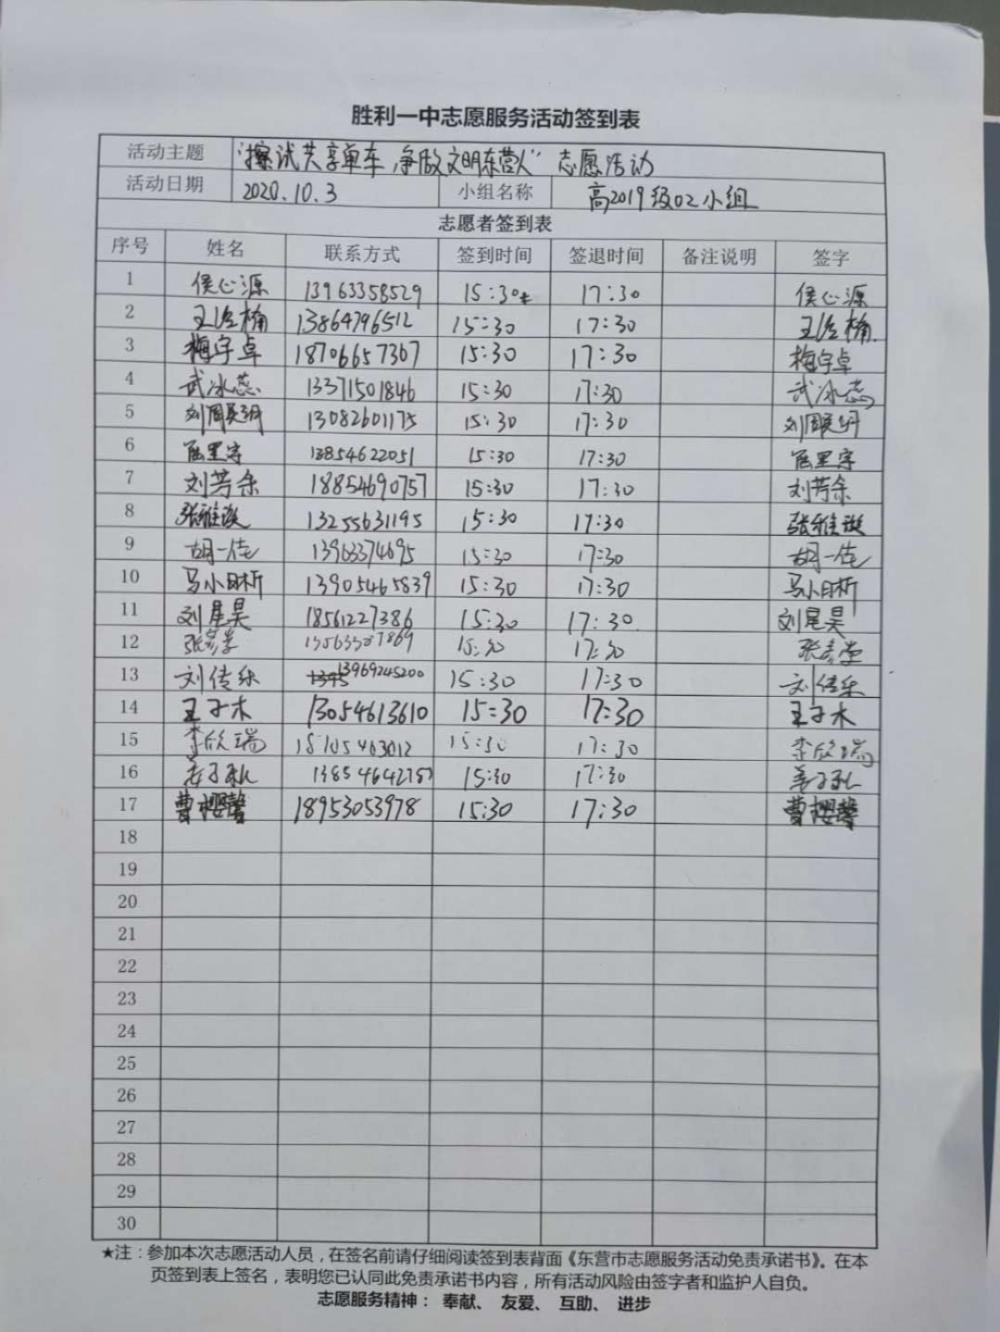 胜利一中志愿服务活动签到表
活动主题 "擦拭共享单车,争做文明东营人"志愿活动
活动日期 2020.10.3 小组名称 高2019级02小组
志愿者签到表
序号 姓名 联系方式 签到时间 签退时间 备注说明 签字
1 侯心源 13963358529 15:30 17:30 侯心源
2 13864796512 15:30 17:30
3 梅宇卓 18706657367 15:30 17:30 梅宇卓
4 武冰蕊 13371501846 15:30 17:30 武冰蕊
5 13082601175 15:30 17:30
6 13854622051 15:30 17:30
7 刘芳余 18854690757 15:30 17:30 刘芳余
8 13255631195 15:30 17:30
9 胡一佳 13963374695 15:30 17:30 胡一佳
10 马小晰 13905465839 15:30 17:30 马小晰
11 刘星昊 18561227386 15:30 17:30 刘星昊
12 15:30 17:30
13 刘传乐 13969245200 15:30 17:30 刘传乐
14 王子木 13054613610 15:30 17:30 王子木
15 李欣瑞 15:30 17:30 李欣瑞
16 15:30 17:30
17 曹樱馨 18953053978 15:30 17:30 曹樱馨
18
19
20
21
22
23
24
25
26
27
28
29
30
★注:参加本次志愿活动人员,在签名前请仔细阅读签到表背面《东营市志愿服务活动免责承诺书》。在本
页签到表上签名,表明您已认同此免责承诺书内容,所有活动风险由签字者和监护人自负。
志愿服务精神: 奉献、 友爱、 互助、 进步